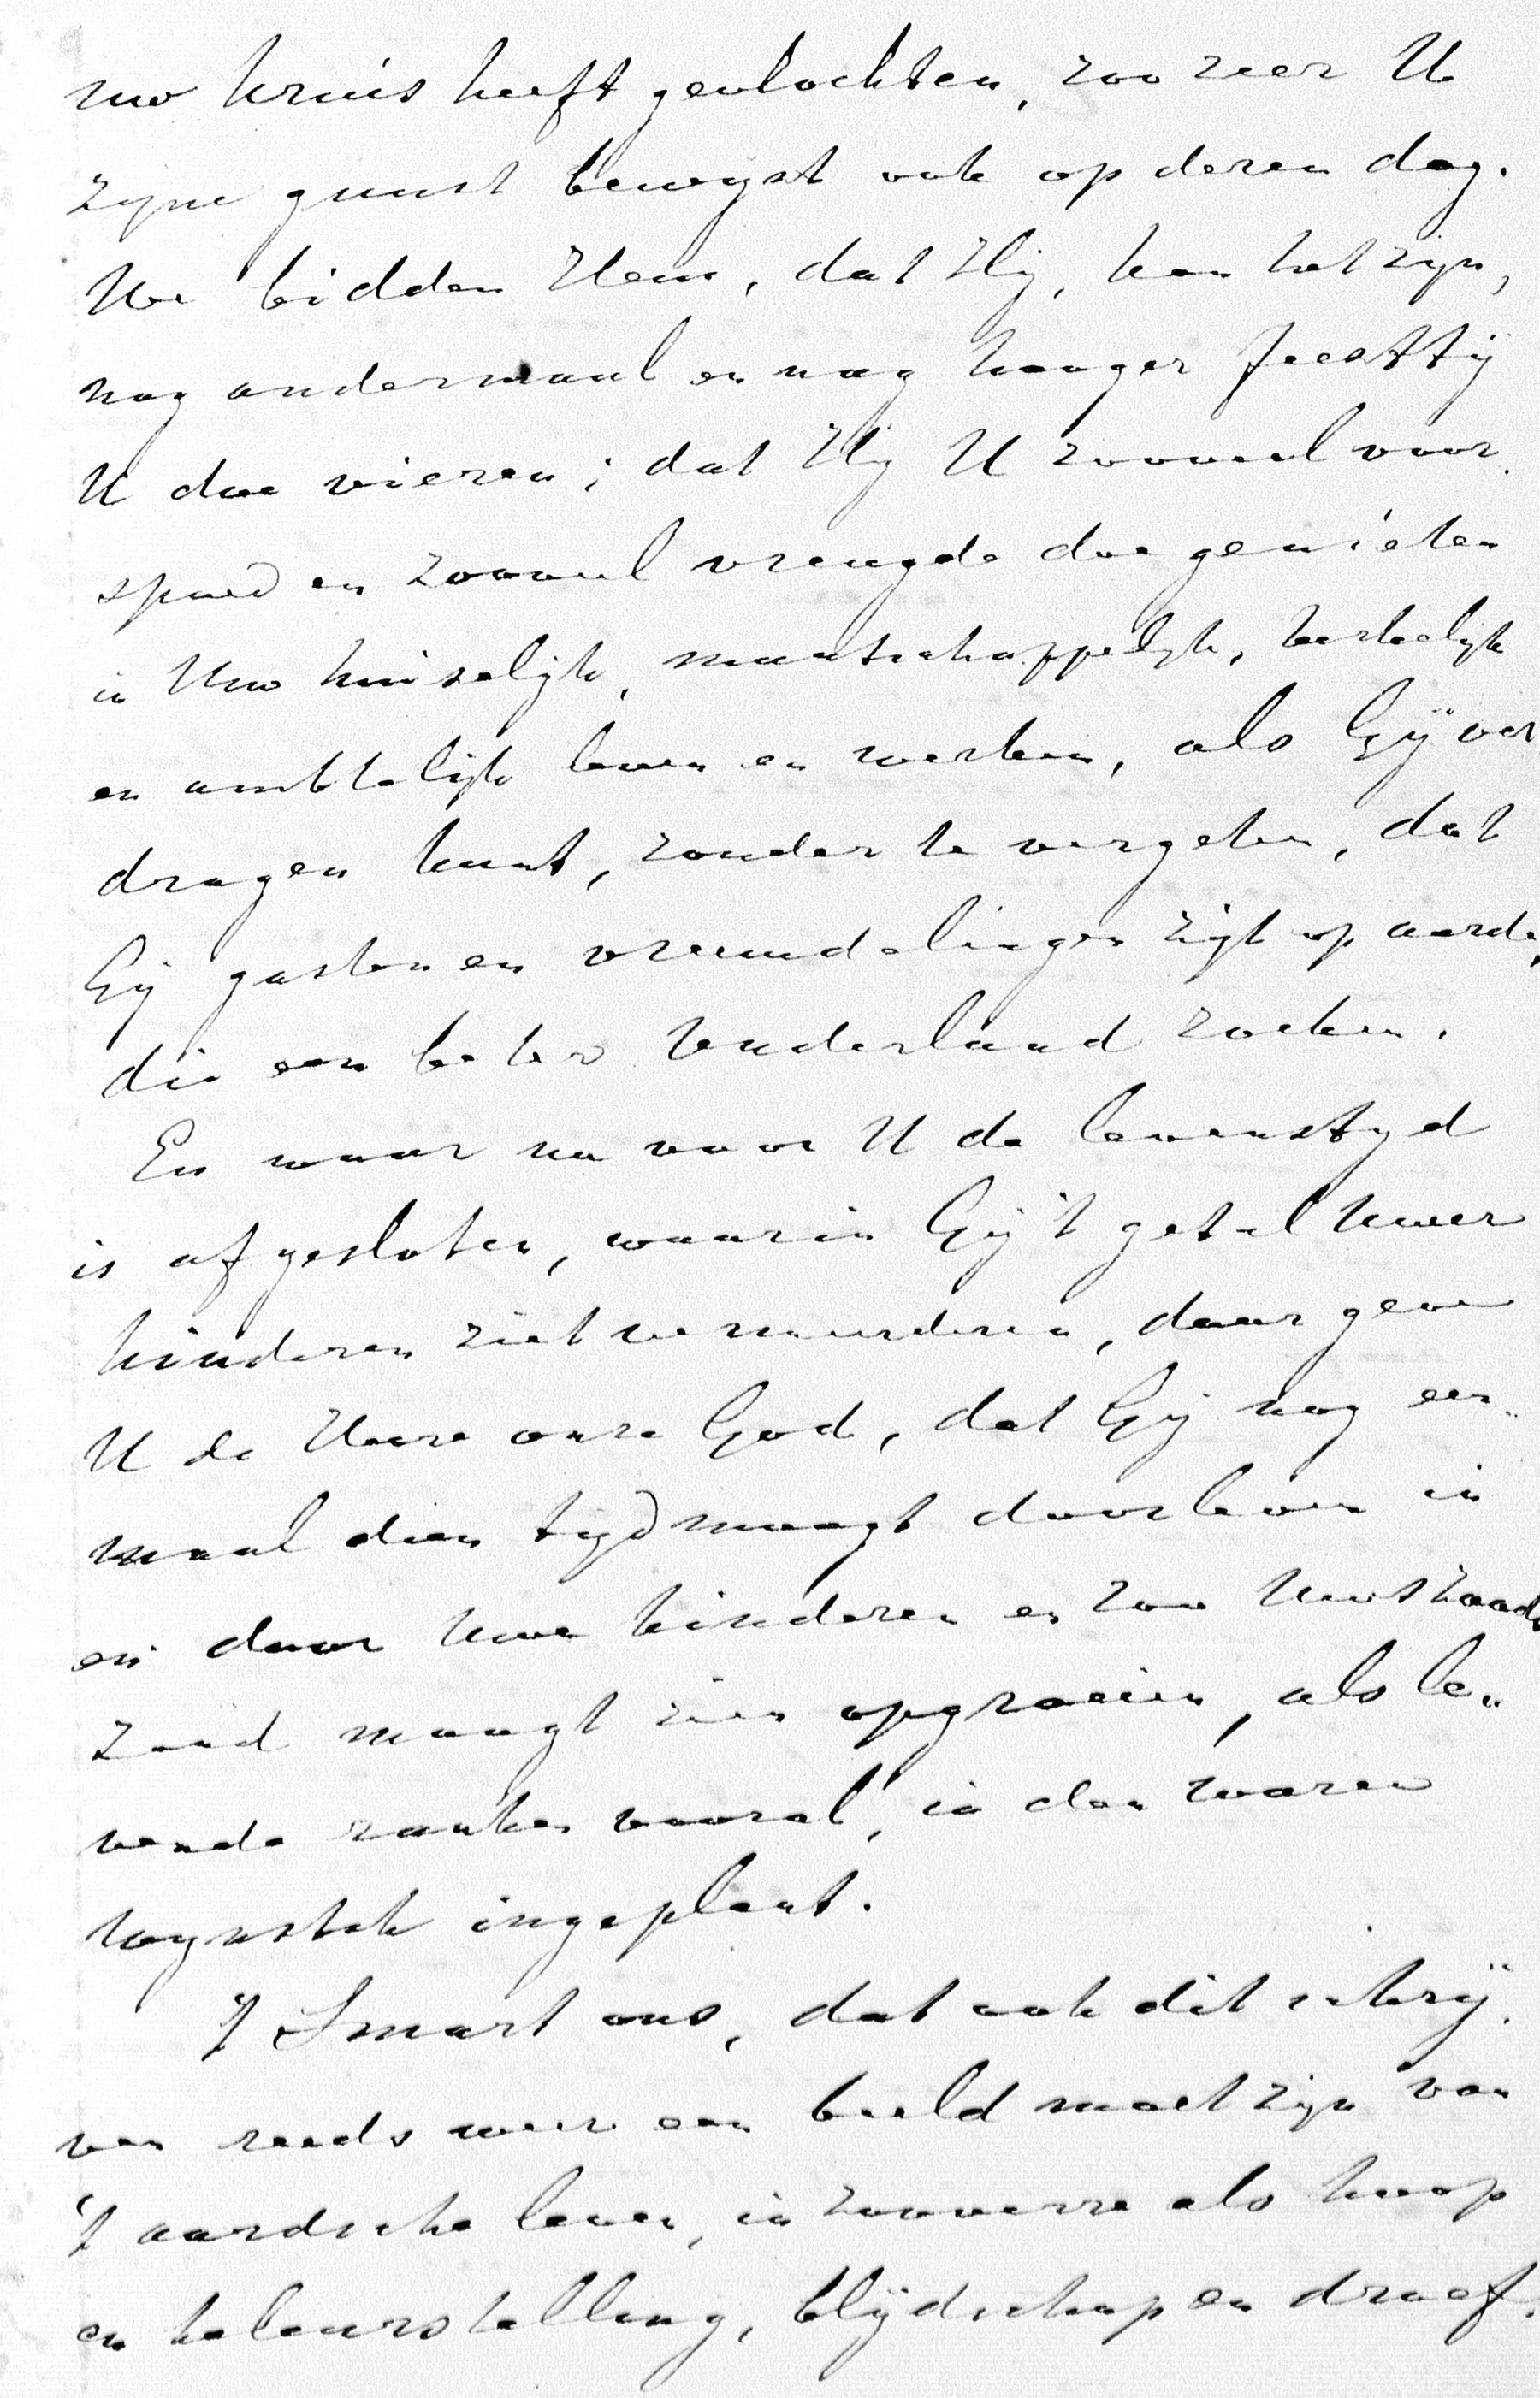 uw kruis heeft gevlochten, zoo zeer U
zijne gunst bewijst ook op dezen dag.
We bidden Hem, dat Hij, kan het zijn,
nog andermaal en nog hooger feesttij
U doe vieren; dat Hij U zooveel voor-
spoed en zooveel vreugde doe genieten
in Uw huiselijk, maatschappelijk, kerkelijk
en ambtelijk leven en werken, als Gij ver
dragen kunt, zonder te vergeten, dat
Gij gasten en vreemdelingen zijt op aarde,
die een beter Vaderland zoeken.
En waar nu voor U de levenstijd
is afgesloten, waarin Gij 't getal Uwer
kinderen ziet vermeerderen, daar geve
U de Heere onze God, dat Gij nog een-
maal dien tijd moogt doorleven in
en door Uwe kinderen en zoo Uws zaads
zaad moogt zien opgroeien, als le-
vende ranken vooral, in den waren
wijnstok ingeplant.
't Smart ons, dat ook dit schrij-
ven reeds weer een beeld moet zijn van
't aardsche leven, in zooverre als hoop
en teleurstelling, blijdschap en droef-